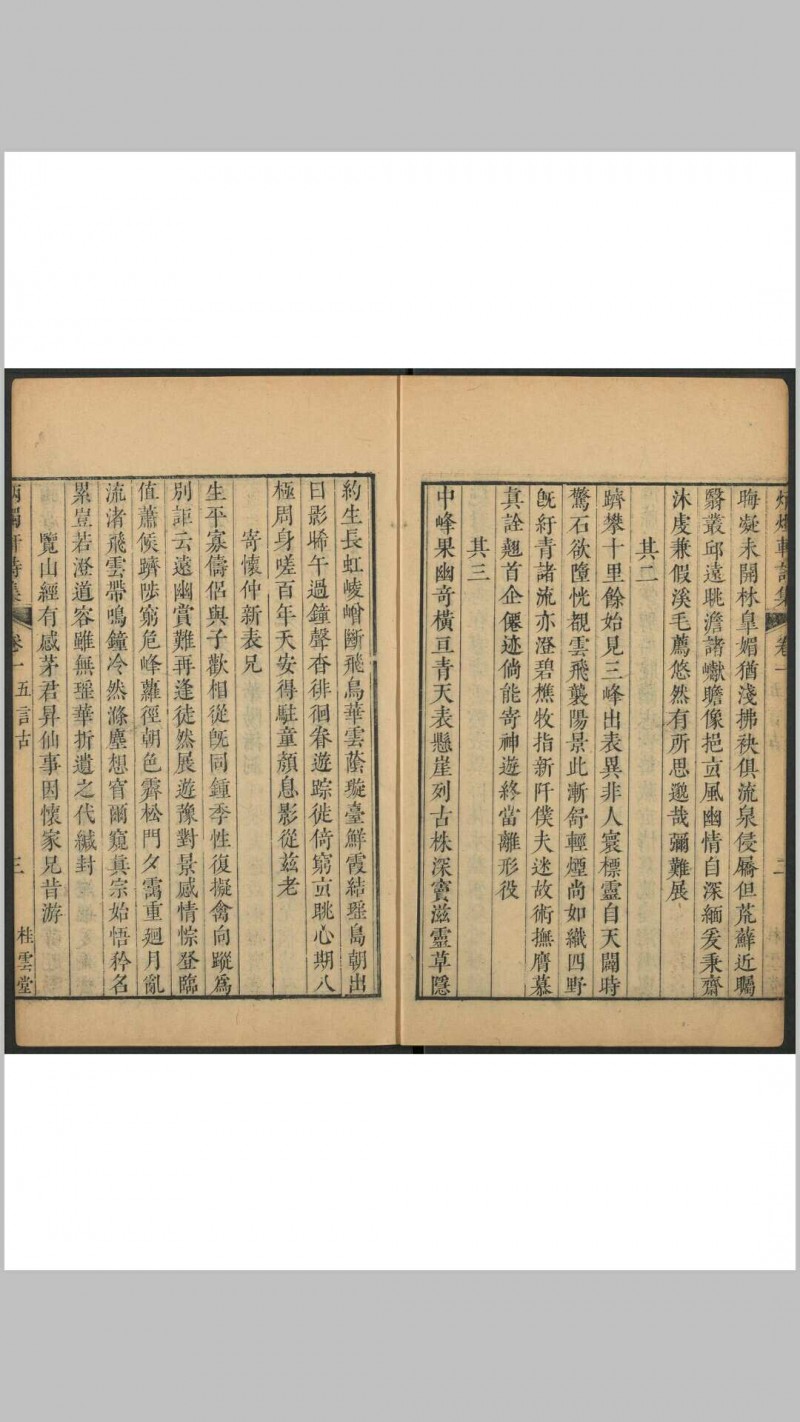 卷一
二
晦凝未開林皐媚猶淺拂袂俱流泉侵屩但荒蘚近矚
翳叢邱遠眺澹諸巘瞻像挹玄風幽情自深緬爰秉齋
沐虔兼假溪毛薦悠然有所思邈哉彌難展
其二
躋攀十里餘始見三峰出表異非人寰標靈自天闢時
驚石欲墮恍覩雲飛襲陽景此漸舒輕煙尚如織四野
旣紆青諸流亦澄碧樵牧指新阡僕夫迷故術撫膺慕
真詮翹首企僊迹倘能寄神遊終當離形役
其三
中峰果幽奇橫亘青天表懸崖列古株深竇滋靈草隱
約生長虹崚嶒斷飛鳥華雲蔭璇臺鮮霞結瑤島朝出
日影晞午過鐘聲杳徘徊眷遊踪徙倚窮玄眺心期八
極周身嗟百年夭安得駐童顏息影從茲老
寄懷仲新表兄
生平寡儔侶與子歡相從旣同鍾季性復擬禽向蹤為
別詎云遠幽賞難再逢徒然展遊豫對景感情悰登臨
值蕭候躋陟窮危峰蘿徑朝色霽松門夕靄重廻月亂
流渚飛雲帶鳴鐘冷然滌塵想窅爾窺真宗始悟矜名
累豈若澄道容雖無瑤華折遺之代緘封
覽山經有感茅君昇仙事因懷家兄昔游
卷一 五言古
三
桂雲堂